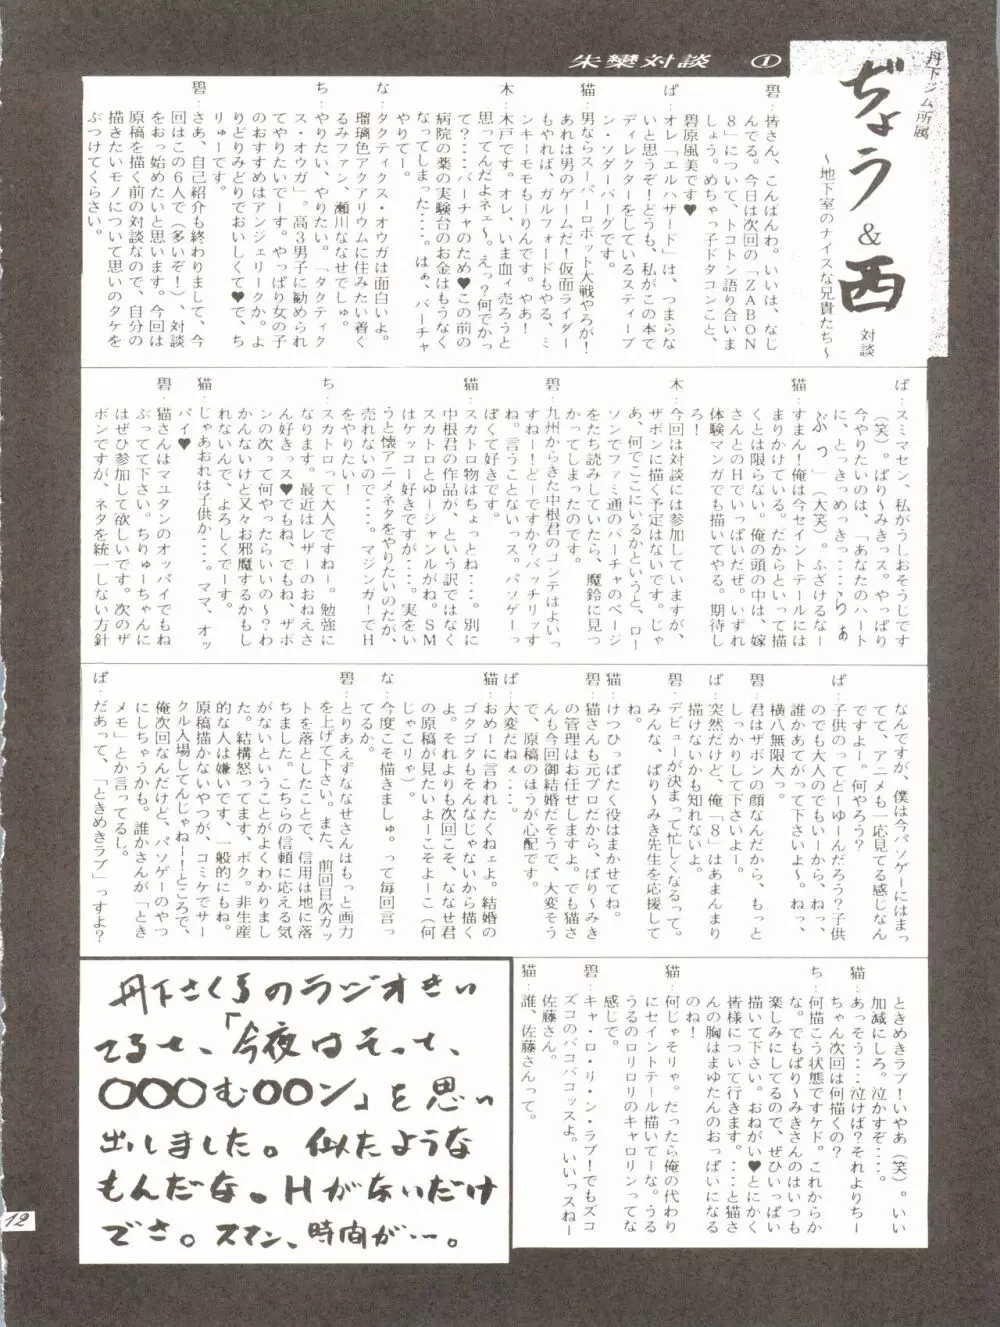 朱欒対談 ①
丹下ジム所属
ぢょう&西
対談
～地下室のナイスな兄貴たち～
碧：皆さん、こんばんわ。いいは、なじ
んでる。今日は次回の「ZABON
8」について、トコトン語り合いま
しょう。めちゃっ子ドタコンこと、
碧原風美です♥
ば：オレ「エルハザード」は、つまらな
いと思うぞ！どうも、私がこの本で
ディレクターをしているスティーブ
ン・ソダーバーグです。
猫：男ならスーパーロボット大戦やろが！
あれは男のゲームだ！仮面ライダー
もやれば、ガルフォードもやる、ミ
ンキーモモもーりんです。やあ！
木：木戸です。オレ、いま血ィ売ろうと
思ってんだよネェ～。えっ？何でかっ
て？‥‥バーチャのため♥この前の
病院の薬の実験台のお金はもうなく
なってしまった‥‥。はぁ、バーチャ
やりてー。
な：タクティクス・オウガは面白いよ。
瑠璃色アクアリウムに住みたい着ぐ
るみファン、瀬川ななせでしゅ。
ち：やりたい、やりたい。「タクティク
ス・オウガ」。高3男子に勧められ
てやりたいでーす。やっぱり女の子
のおすすめはアンジェリークか。よ
りどりみどりでおいしくて♥で、ち
りゅーです。
碧：さあ、自己紹介も終わりまして、今
回はこの6人で（多いぞ！）、対談
をおっ始めたいと思います。今回は
原稿を描く前の対談なので、自分の
描きたいモノについて思いのタケを
ぶつけてくらさい。
ば：スミマセン、私がうしおそうじです
（笑）。ぱり～みきっス。やっぱり
今やりたいのは、「あなたのハート
に、とっきっめっきっ‥‥らりぁ
ぶっっ」（大笑）。ふざけるなー
猫：すまん！俺は今セイントテールには
まりかけている。だからといって描
くとは限らない。俺の頭の中は、嫁
さんとのHでいっぱいだぜ。いずれ
体験マンガでも描いてやる。期待し
ろ！
木：今回は対談には参加していますが、
ザボンに描く予定はないです。じゃ
あ、何でここにいるかというと、ロー
ソンでファミ通のバーチャのページ
をたち読みしていたら、魔鈴に見っ
かってしまったのです。
碧：九州からきた中根君のコンテはよいっ
すねー！どーですか？バッチリっす
ね。言うことないっス。パソゲーっ
ぽくて好きです。
猫：スカトロ物はちょっとね‥‥。別に
中根君の作品が、という訳ではなく
スカトロとゆージャンルがね。SM
はケッコー好きですが‥‥。実をい
うと懐アニメネタをやりたいのだが、
売れないので‥‥。マジンガーでH
をやりたい！
ち：スカトロって大人ですねー。勉強に
なります。最近はレザーのおねえさ
ん好きっス♥でもね、でもね、ザボ
ンの次って何やったらいいの～？わ
かんないけど又々お邪魔するかもし
れないんで、よろしくでーす。
猫：じゃあおれは子供か‥‥。ママ、オッ
パイ♥
碧：猫さんはマユタンのオッパイでもね
ぶってて下さい。ちりゅーちゃんに
はぜひ参加して欲しいです。次のザ
ボンですが、ネタを統一しない方針
なんですが、僕は今パソゲーにはまっ
てて、アニメも一応見てる感じなん
ですよー。何やろう？
ぱ：子供のってどーゆーんだろう？子供
のでも大人のでもいーから、ねっ、
誰かあてがって下さいよ～。ねっ、
横八無限大っ。
碧：君はザボンの顔なんだから、もっと
しっかりして下さいよー。
ば：突然だけど、俺「8」はあまんまり
描けないかも知れない。
碧：デビューが決まって忙しくなるって。
みんな、ぱり～みき先生を応援して
ね。
猫：けつひっぱたく役はまかせてね。
碧：猫さんも元プロだから、ぱり～みき
の管理はお任せしますよ。でも猫さ
んも今回御結婚だそうで、大変そう
で、原稿のほうが心配です。
ば：大変だねぇ‥‥。
猫：おめーに言われたくねェよ。結婚の
ゴタゴタもそんなじゃないから描く
よ。それよりも次回こそ、ななせ君
の原稿が見たいよーこそよーこ（何
じゃこりゃ）。
な：今度こそ描きましゅ。って毎回言っ
てるか。
碧：とりあえずななせさんはもっと画力
を上げて下さい。また、前回目次カッ
トを落としたことで、信用は地に落
ちました。こちらの信頼に応える気
がないということがよくわかりまし
た。結構怒ってます、ボク。非生産
的な人は嫌いです、一般的にもね。
原稿描かないやつが、コミケでサー
クル入場してんじゃねー！ところで、
俺次回なんだけど、パソゲーのやつ
にしちゃうかも。誰かさんが「とき
メモ」とか言ってるし。
ぱ：だあって、「ときめきラブ」っすよ？
ときめきラブ！いやあ（笑）。いい
加減にしろ。泣かすぞ‥‥。
猫：あっそう‥‥泣けば？それよりちー
ちゃん次回は何描くの？
ち：何描こう状態ですケド。これからか
な。でもぱり～みきさんのはいつも
楽しみにしてるので、ぜひいっぱい
描いて下さい。おねがい♥とにかく
皆様について行きます。‥‥と猫さ
んの胸はまゆたんのおっぱいになる
のね！
猫：何じゃそりゃ。だったら俺の代わり
にセイントテール描いてーな。うる
うるのロリロリのキャロリンってな
感じで。
碧：キャ・ロ・リ・ン・ラブ！でもズコ
ズコのバコバコッスよ。いいっスねー
佐藤さん。
猫：誰、佐藤さんって。
丹下さくらのラジオきい
てると、「今夜はそっと、
○○○む○○ン」を思い
出しました。似たような
もんだな。Hがないだけ
でさ。スマン、時間が‥‥。
12